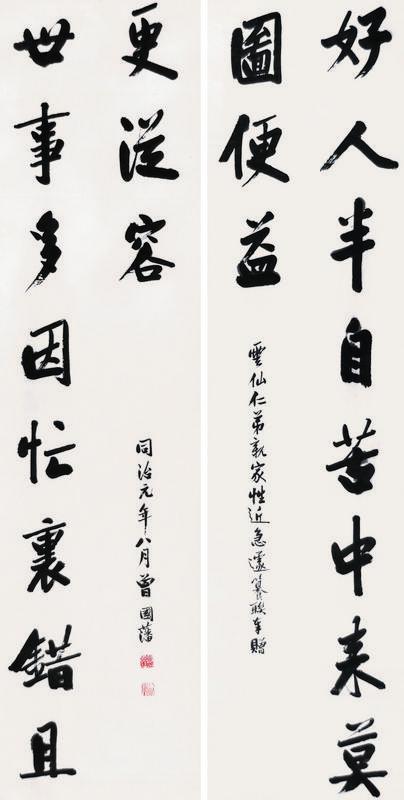 好人半自苦中来莫
圖便益
雲仙仁弟親家性近急遽篡聯奉贈
世事多因忙裏錯且
更從容
同治元年八月曾國藩